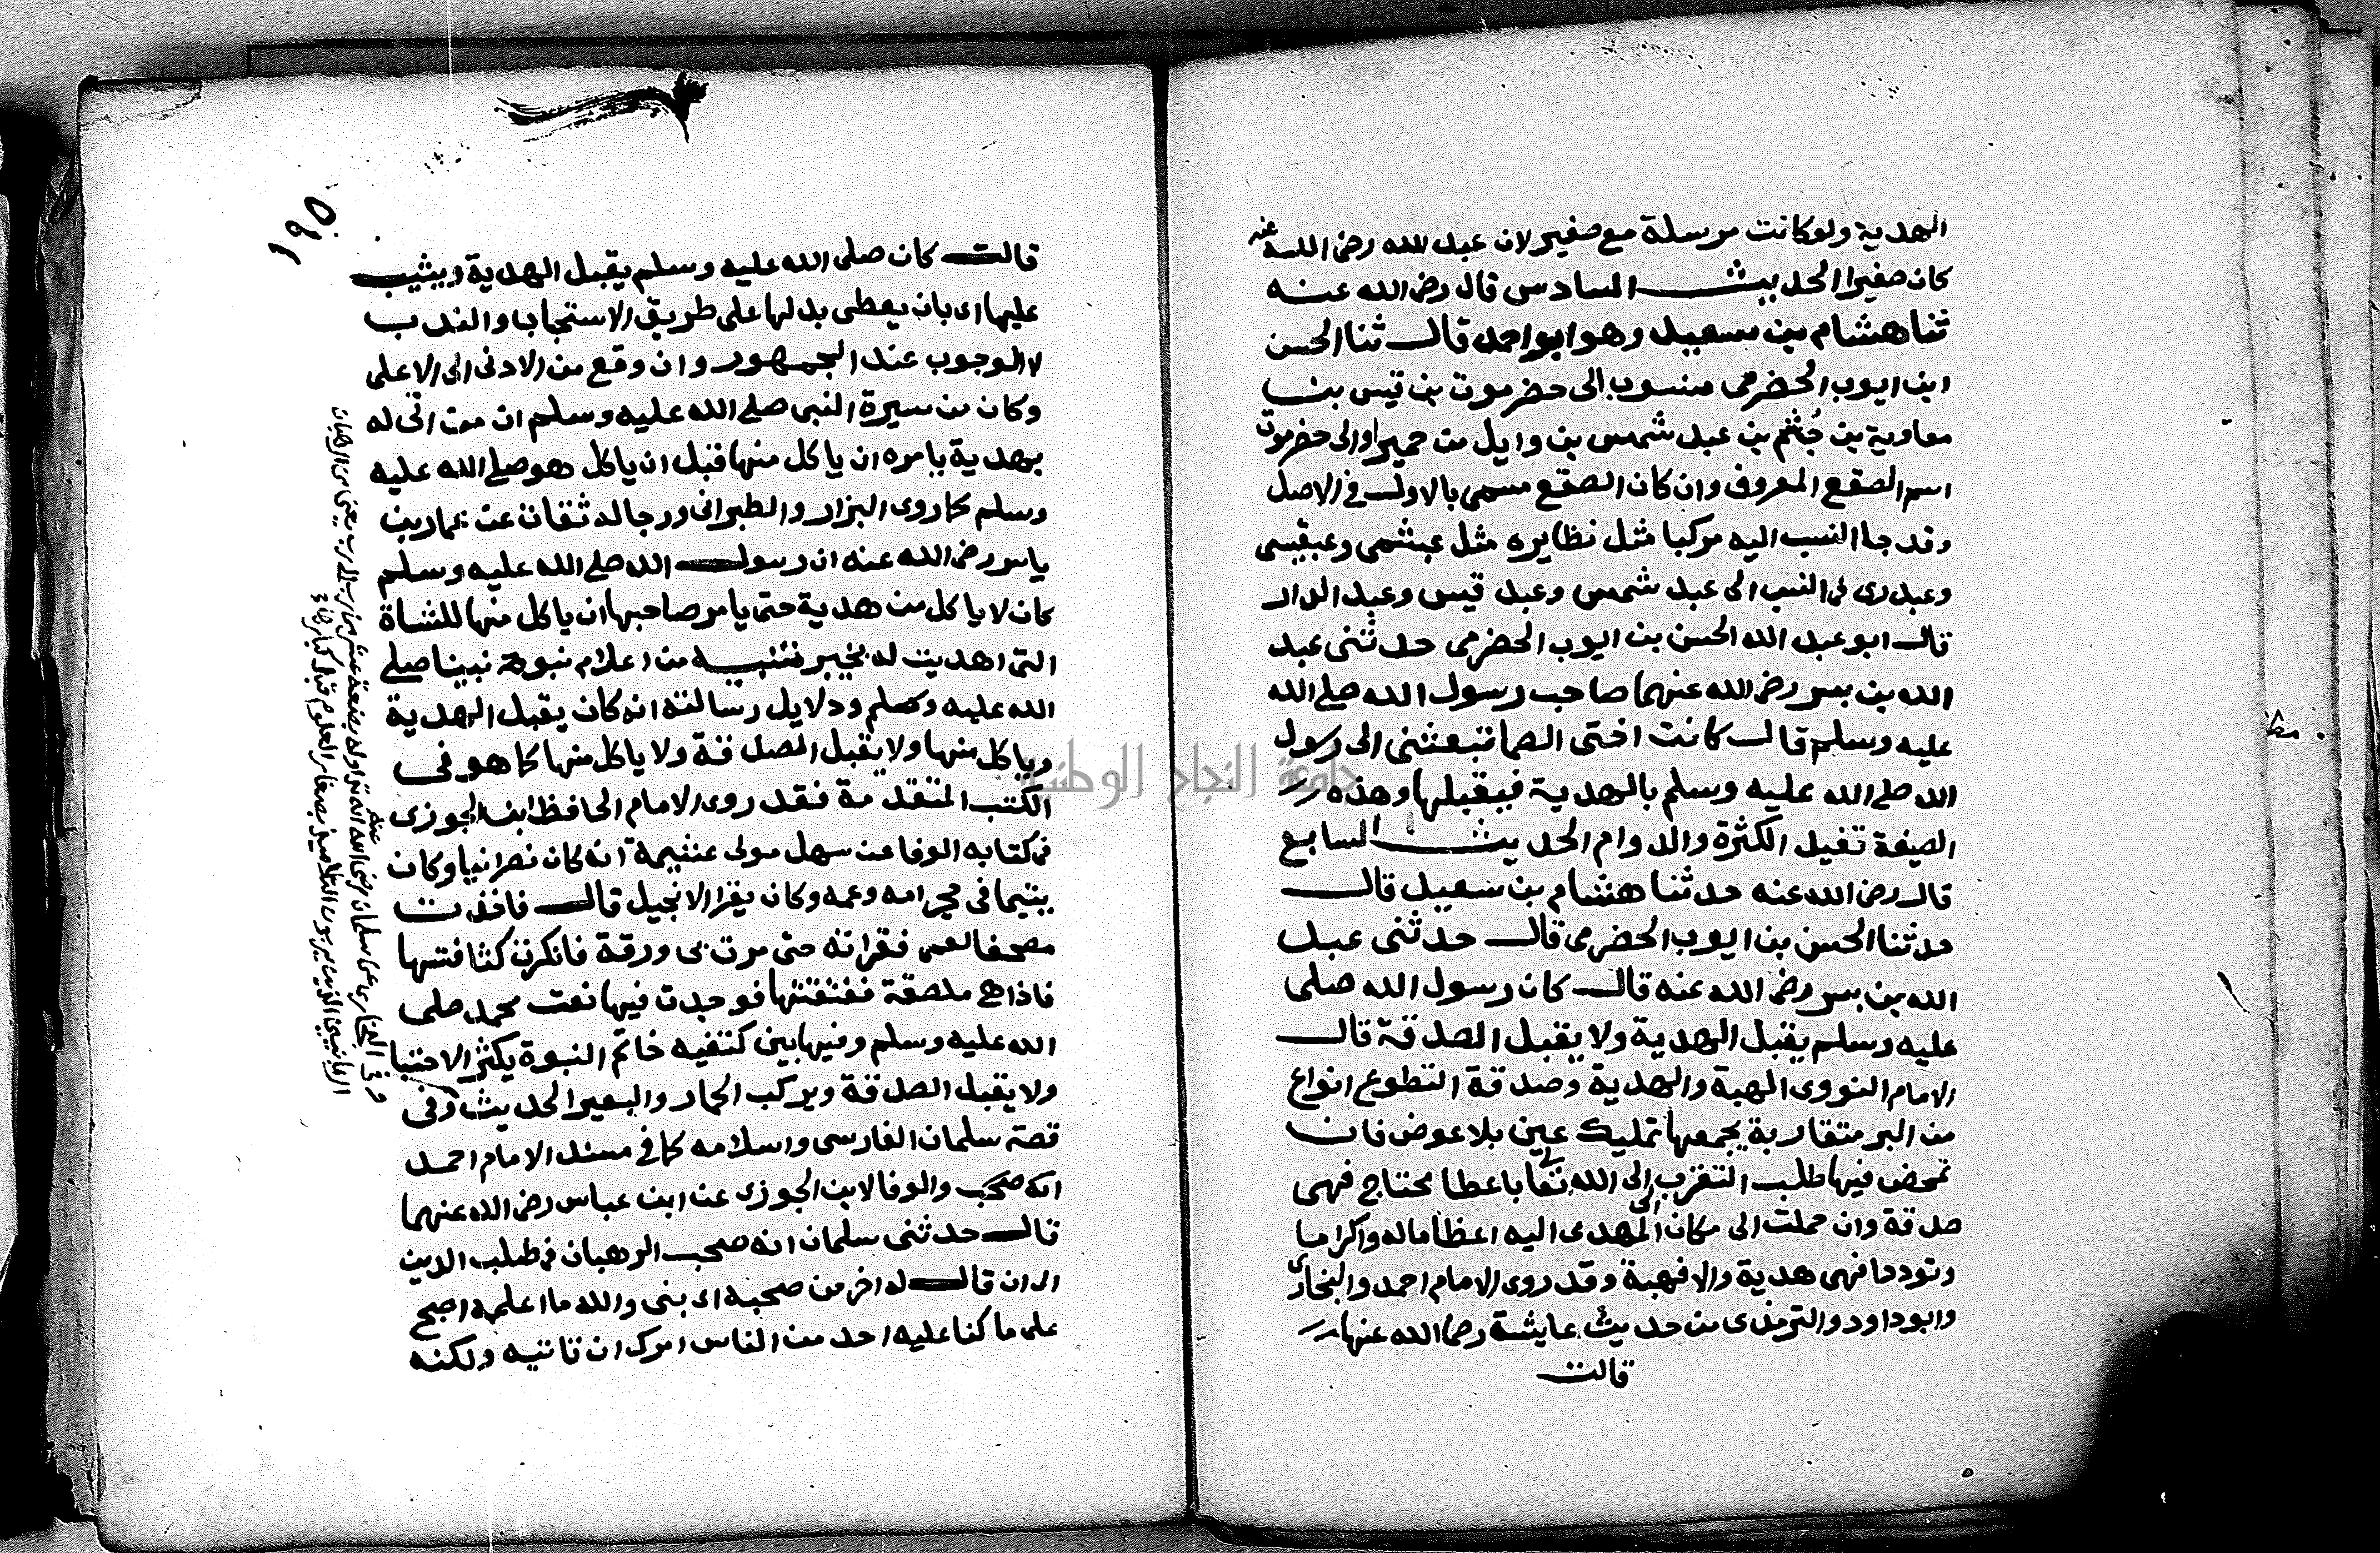 الهدية ولو كانت مرسلة مع صغير لان عبد الله رضى الله عنه
كان صغيرا الحديث السادس قال رضى الله عنه
ثنا هشام بن سعيد وهو ابو احمد قال ثنا الحسن
ابن ايوب الحضرمى منسوب الى حضرموت بن قيس بن
معاوية بن جُشم بن عبد شمس بن وايل من حمير او الى حضرموت
اسم الصقع المعروف وان كان الصقع مسمى بالاول فى الاصل
وقد جا النسب اليه مركبا مثل نظايره مثل عبشمى وعبقسى
وعبدرى فى النسب الى عبد شمس وعبد قيس وعبد الدار
قال ابو عبد الله الحسن بن ايوب الحضرمى حدثنى عبد
الله بن بسر رضى الله عنهما صاحب رسول الله صلى الله
عليه وسلم قال كانت اختى الصما تبعثنى الى رسول
الله صلى الله عليه وسلم بالهدية فيقبلها وهذه
الصيغة تفيد الكثرة والدوام الحديث السابع
قال رضى الله عنه حدثنا هشام بن سعيد قال
حدثنا الحسن بن ايوب الحضرمى قال حدثنى عبد
الله بن بسر رضى الله عنه قال كان رسول الله صلى
عليه وسلم يقبل الهدية ولا يقبل الصدقة قال
الامام النووى الهبة والهدية وصدقة التطوع انواع
من البر متقاربة يجمعها تمليك عين بلا عوض فان
تمحض فيها طلب التقرب الى الله تعا باعطا محتاج فهى
صدقة وان حملت الى مكان المهدى اليه اعظاما له واكراما
وتوددا فهى هدية والا فهبة وقد روى الامام احمد والبخارى
وابوداود والترمذى من حديث عايشة رضى الله عنها
قالت
١٩٥
قالت كان صلى الله عليه وسلم يقبل الهدية ويثيب
عليها اى بان يعطى بدلها على طريق الاستحباب والندب
لا الوجوب عند الجمهور وان وقع من الادنى الى الاعلى
وكان من سيرة النبى صلى الله عليه وسلم ان من اتى له
بهدية يامره ان ياكل منها قبل ان ياكل هو صلى الله عليه
وسلم كما روى البزار والطبرانى ورجاله ثقات عن عمار بن
ياسر رضى الله عنه ان رسول الله صلى الله عليه وسلم
كان لا ياكل من هدية حتى يامر صاحبها ان ياكل منها للشاة
التى اهديت له بخيبر تنبيه من اعلام نبوة نبينا صلى
الله عليه وسلم ودلايل رسالته انه كان يقبل الهدية
وياكل منها ولا يقبل الصدقة ولا ياكل منها كما هو فى
الكتب المتقدمة فقد روى الامام الحافظ ابن الجوزى
فى كتابه الوفا عن سهل مولى عتيمة انه كان نصرانيا وكان
يتيما فى حجر امه وعمه وكان يقرا الانجيل قال فاخذت
مصحفا لعمى فقراته حتى مرت بى ورقة فانكرت كثافتها
فاذا هى ملصقة ففتقتها فوجدت فيها نعت محمد صلى
الله عليه وسلم وفيها بين كتفيه خاتم النبوة يكثر الاحتبا
ولا يقبل الصدقة ويركب الحمار والبعير الحديث وفى
قصة سلمان الفارسى واسلامه كما فى مسند الامام احمد
والوفا لابن الجوزى عن ابن عباس رضى الله عنهما
قال حدثنى سلمان انه صحب الرهبان فى طلب الدين
الى ان قال له اخر من صحبه اى بنى والله ما اعلمه اصبح
على ما كنا عليه احد من الناس امرك ان تاتيه ولكنه
وفى البخارى عن سلمان رضى الله عنه انه تداوله بضعة عشر من رب الى رب يعنى من الرهبان
جامعة النجاح الوطنية